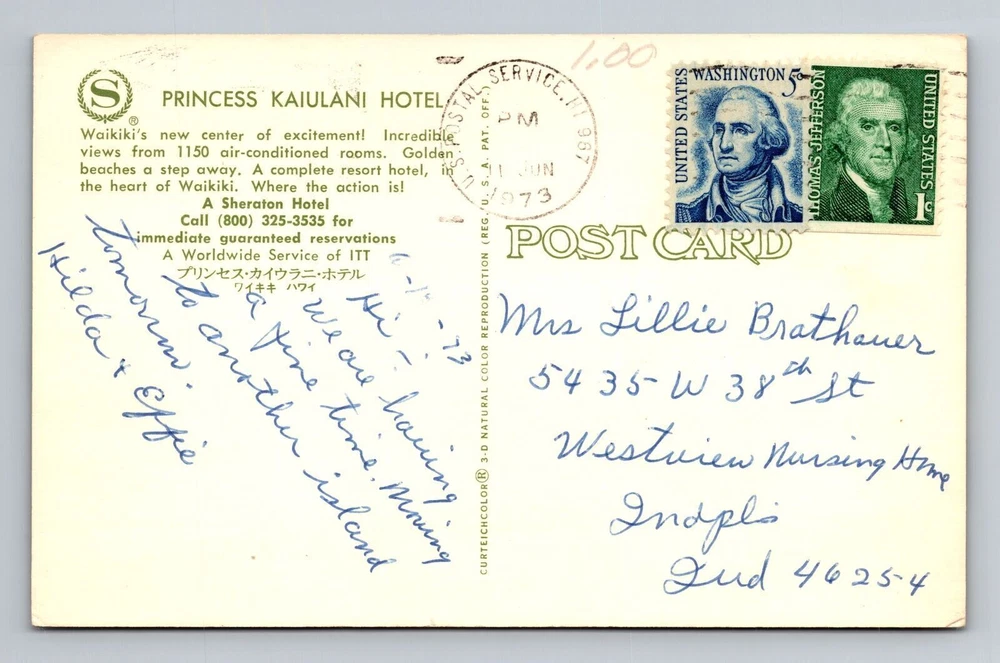 S
®
PRINCESS KAIULANI HOTEL
Waikiki's new center of excitement! Incredible
views from 1150 air-conditioned rooms. Golden
beaches a step away. A complete resort hotel, in
the heart of Waikiki. Where the action is!
A Sheraton Hotel
Call (800) 325-3535 for
immediate guaranteed reservations
A Worldwide Service of ITT
プリンセス・カイウラニ・ホテル
ワイキキ ハワイ
73
Hi -
We are having
a fine time. Moving
to another island
tomorrow.
Hilda & Effie
CURTEICHCOLOR® 3-D NATURAL COLOR REPRODUCTION (REG. U. S. A. PAT. OFF.)
U.S. POSTAL SERVICE, HI 967
PM
11 JUN
1973
1.00
UNITED STATES
WASHINGTON 5c
THOMAS JEFFERSON
UNITED STATES 1c
POST CARD
Mrs Lillie Brathauer
5435 W 38th St
Westview Nursing Home
Indpls
Ind 46254